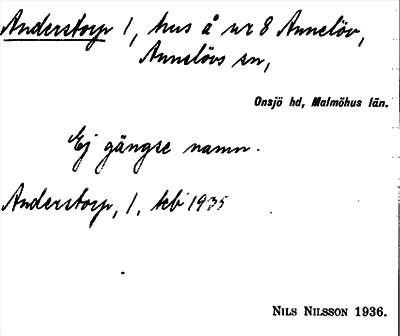 Anderstorp 1, hus å nr 8 Annelöv,
Annelövs sn,
Onsjö hd, Malmöhus län.
Ej gängse namn.
Anderstorp, 1, kb 1935
NILS NILSSON 1936.